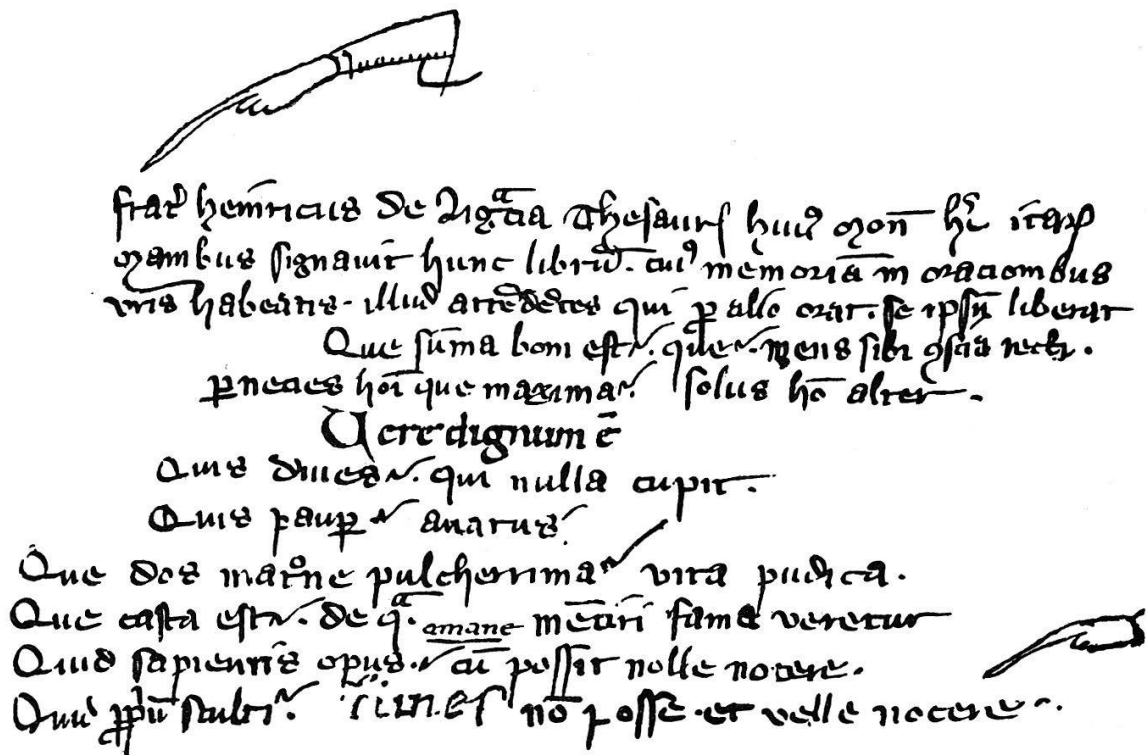 frat᷒ henricus de Thesaur᷒ huiꝰ mon̄
manibus signavit hunc librū. cuiꝰ memoriā in oracionibus
vr̄is habeatis. illud qui ꝓ alio orat. se ipsū liberat
Que sūma boni est. que. mens sibi ꝯscia recti.
ꝑnecies hoī que maxima. solus hō alter.
Vere dignum ē
Quis diues. qui nulla cupit.
Quis pauꝑ auarus.
Que dos matrone pulcherrima vita pudica.
Que casta est. de qᵃ. mētiri fama veretur
Quid sapientis opus. cū possit nolle nocere.
Quid ꝓpriū stulti. nō posse et velle nocere.